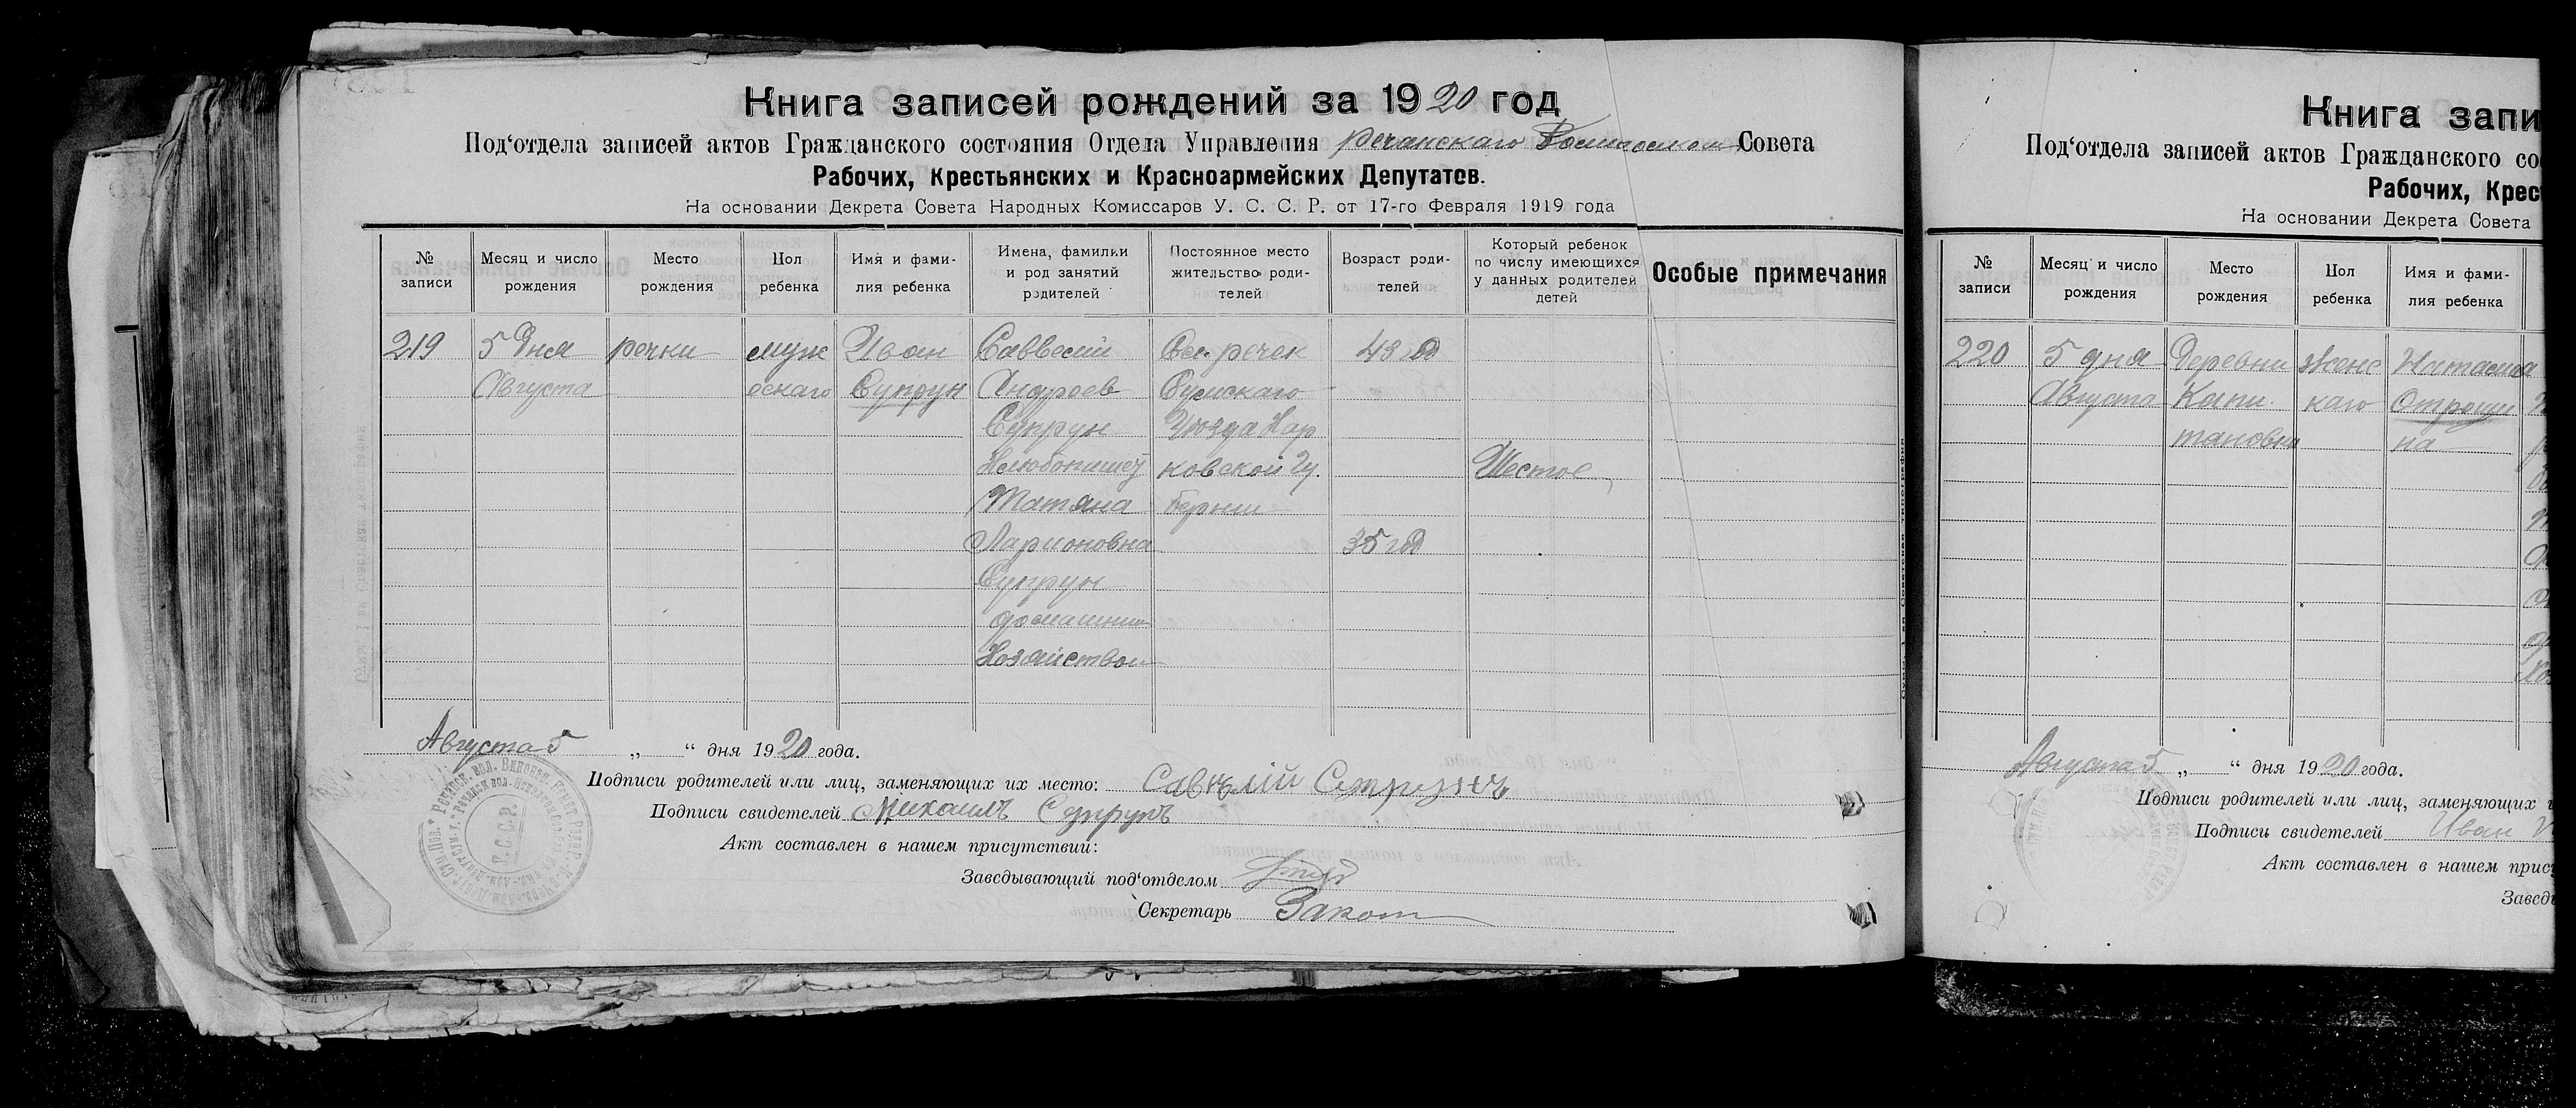 Книга записей рождений за 1920 год
Под‘отдела записей актов Гражданского состояния Отдела Управления Речанскаго Совета
Рабочих, Крестьянских и Красноармейских Депутатов.
На основании Декрета Совета Народных Комиссаров У. С. С. Р. от 17-го Февраля 1919 года
№ записи
Месяц и число рождения
Место рождения
Пол ребенка
Имя и фами-
лия ребенка
Имена, фамилии
и род занятий
родителей
Постоянное место
жительство роди-
телей
Возраст роди-
телей
Который ребенок
по числу имеющихся
у данных родителей
детей
Особые примечания
219
5 дня
Августа
речки
муж
ескаго
Иван
Супрун
Савве
Андреев
Супрун
Хлебопашец
Татяна
Ларионовна
Супрун
домашним
Хозяйством
Сел. речек
Сумскаго
Уезда Хар
ковской Гу
бернии
43 год
35 год
Шестое
Августа 5 „ “ дня 1920 года.
Подписи родителей или лиц, заменяющих их место:
Подписи свидетелей Михаилъ Супрунъ
Акт составлен в нашем присутствий:
Заведывающий под‘отделом
Секретарь
У.С.С.Р.
Книга запи
Под‘отдела записей актов Гражданского со
Рабочих, Крес
На основании Декрета Совета
№ записи
Месяц и число рождения
Место рождения
Пол ребенка
Имя и фами-
лия ребенка
220
5 дня
Августа
Деревни
Капи
тановки
женс
каго
Наталия
Отрощи
на
Августа 5 „ “ дня 1920 года.
Подписи родителей или лиц, заменяющих
Подписи свидетелей Иван
Акт составлен в нашем прис
Завед